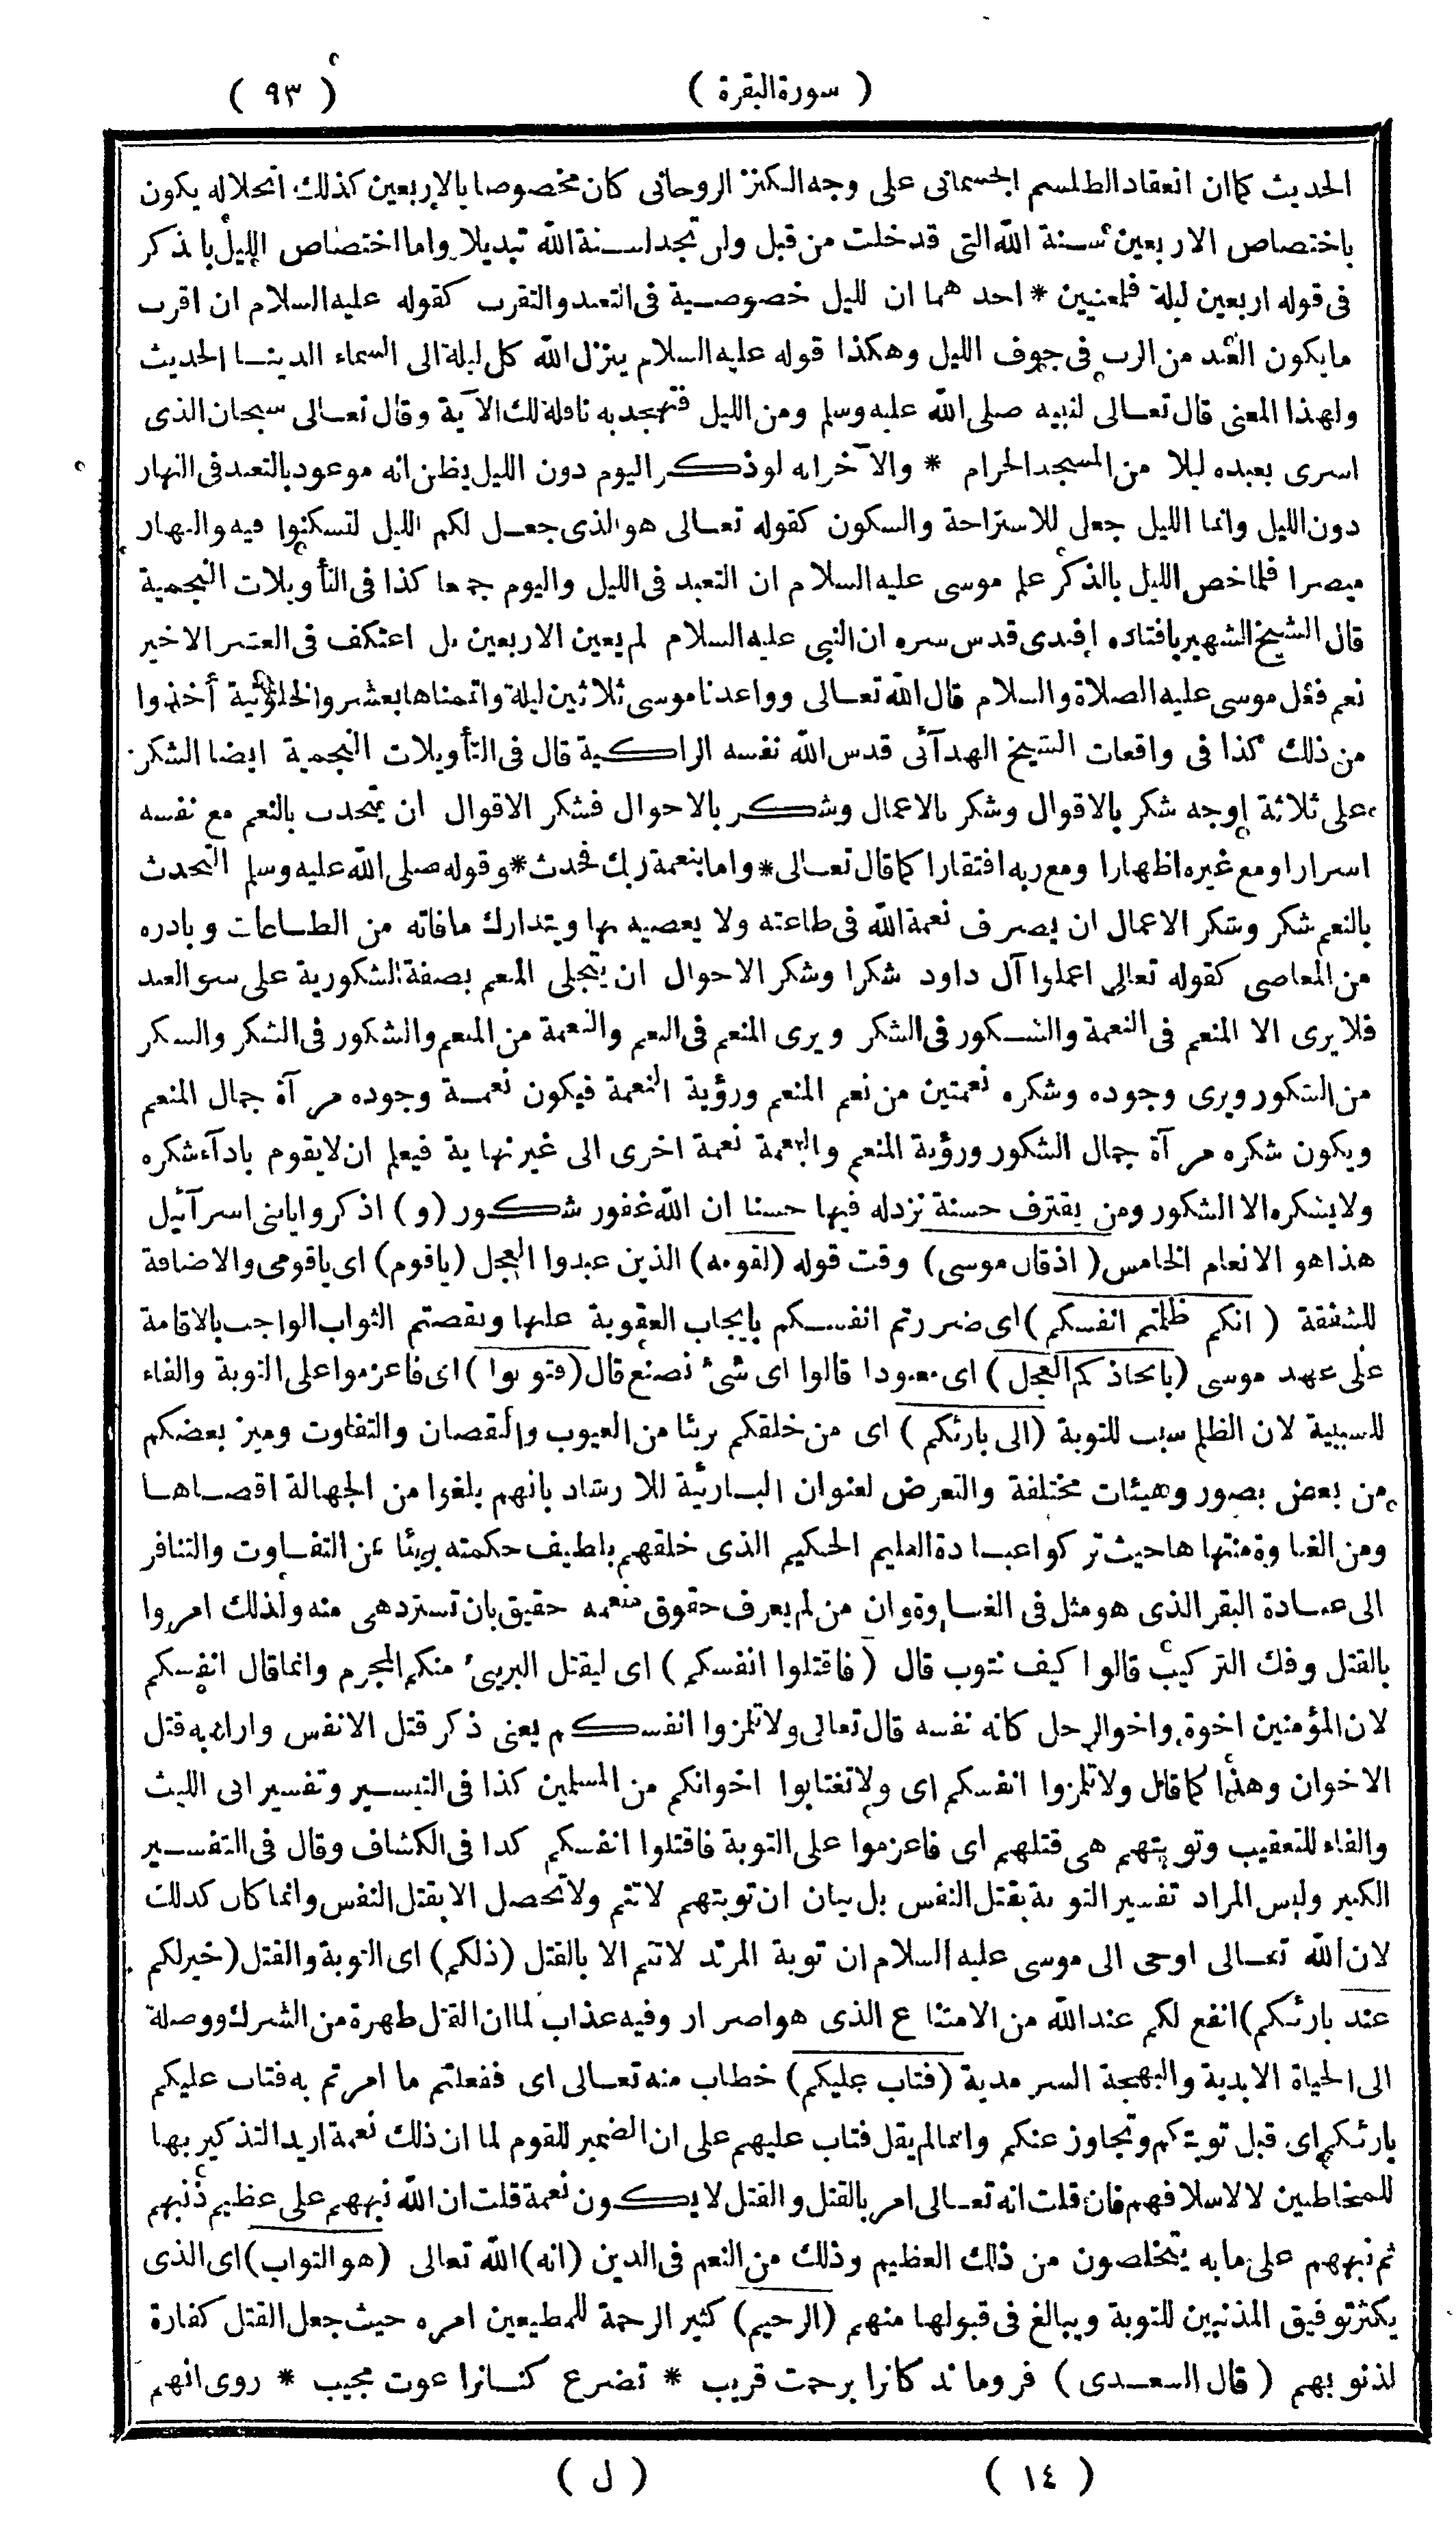 ( سورة البقرة )
( ٩٣ )
الحديث كما ان انعقاد الطلسم الجسمانى على وجه الكنز الروحانى كان مخصوصا بالاربعين كذلك انحلاله يكون
باختصاص الاربعين سنة الله التى قد خلت من قبل ولن تجد لسنة الله تبديلا واما اختصاص الليل بالذكر
فى قوله اربعين ليلة فلمعنيين * احدهما ان لليل خصوصية فى التعبد والتقرب كقوله عليه السلام ان اقرب
ما يكون العبد من الرب فى جوف الليل وهكذا قوله عليه السلام ينزل الله كل ليلة الى السماء الدنيا الحديث
ولهذا المعنى قال تعالى لنبيه صلى الله عليه وسلم ومن الليل فتهجد به نافلة لك الآية وقال تعالى سبحان الذى
اسرى بعبده ليلا من المسجد الحرام * والآخر انه لو ذكر اليوم دون الليل يظن انه موعود بالتعبد فى النهار
دون الليل وانما الليل جعل للاستراحة والسكون كقوله تعالى هو الذى جعل لكم الليل لتسكنوا فيه والنهار
مبصرا فلما خص الليل بالذكر علم موسى عليه السلام ان التعبد فى الليل واليوم جمعا كذا فى التأويلات النجمية
قال الشيخ الشهير بافتاده افندى قدس سره ان النبى عليه السلام لم يعين الاربعين بل اعتكف فى العشر الاخير
نعم فعل موسى عليه الصلاة والسلام قال الله تعالى وواعدنا موسى ثلاثين ليلة واتممناها بعشر والخلوتية أخذوا
من ذلك كذا فى واقعات الشيخ الهدآئى قدس الله نفسه الزاكية قال فى التأويلات النجمية ايضا الشكر
على ثلاثة اوجه شكر بالاقوال وشكر بالاعمال وشكر بالاحوال فشكر الاقوال ان يتحدث بالنعم مع نفسه
اسرارا ومع غيره اظهارا ومع ربه افتقارا كما قال تعالى * واما بنعمة ربك فحدث * وقوله صلى الله عليه وسلم التحدث
بالنعم شكر وشكر الاعمال ان يصرف نعمة الله فى طاعته ولا يعصيه بها ويتدارك ما فاته من الطاعات وبادره
من المعاصى كقوله تعالى اعملوا آل داود شكرا وشكر الاحوال ان يتجلى المنعم بصفة الشكورية على سر العبد
فلا يرى الا المنعم فى النعمة والشكور فى الشكر ويرى المنعم فى النعم والنعمة من المنعم والشكور فى الشكر والشكر
من الشكور ويرى وجوده وشكره نعمتين من نعم المنعم ورؤية النعمة فيكون نعمة وجوده مرآة جمال المنعم
ويكون شكره مرآة جمال الشكور ورؤية المنعم والنعمة نعمة اخرى الى غير نهاية فيعلم ان لا يقوم بادآء شكره
ولا يشكره الا الشكور ومن يقترف حسنة نزد له فيها حسنا ان الله غفور شكور (و) اذكروا يا بنى اسرآئيل
هذا هو الانعام الخامس (اذ قال موسى) وقت قوله (لقومه) الذين عبدوا العجل (يا قوم) اى يا قومى والاضافة
للشفقة (انكم ظلمتم انفسكم) اى ضررتم انفسكم بايجاب العقوبة عليها ونقصتم الثواب الواجب بالاقامة
على عهد موسى (باتخاذكم العجل) اى معبودا قالوا اى شئ نصنع قال (فتوبوا) اى فاعزموا على التوبة والفاء
للسببية لان الظلم سبب للتوبة (الى بارئكم) اى من خلقكم بريئا من العيوب والنقصان والتفاوت وميز بعضكم
من بعض بصور وهيئات مختلفة والتعرض لعنوان البارئية للارشاد بانهم بلغوا من الجهالة اقصاها
ومن الغباوة منتهاها حيث تركوا عبادة العليم الحكيم الذى خلقهم بلطيف حكمته بريئا من التفاوت والتنافر
الى عبادة البقر الذى هو مثل فى الغباوة وان من لم يعرف حقوق منعمه حقيق بان تسترد هى منه ولذلك امروا
بالقتل وفك التركيب قالوا كيف نتوب قال (فاقتلوا انفسكم) اى ليقتل البريئ منكم المجرم وانما قال انفسكم
لان المؤمنين اخوة واخو الرجل كانه نفسه قال تعالى ولا تلمزوا انفسكم يعنى ذكر قتل الانفس واراد به قتل
الاخوان وهذا كما قال ولا تلمزوا انفسكم اى ولا تغتابوا اخوانكم من المسلمين كذا فى التيسير وتفسير ابى الليث
والفاء للتعقيب وتوبتهم هى قتلهم اى فاعزموا على التوبة فاقتلوا انفسكم كذا فى الكشاف وقال فى التفسير
الكبير وليس المراد تفسير التوبة بقتل النفس بل بيان ان توبتهم لا تتم ولا تحصل الا بقتل النفس وانما كان كذلك
لان الله تعالى اوحى الى موسى عليه السلام ان توبة المرتد لا تتم الا بالقتل (ذلكم) اى التوبة والقتل (خير لكم
عند بارئكم) انفع لكم عند الله من الامتناع الذى هو اصرار وفيه عذاب لما ان القتل طهرة من الشرك ووصلة
الى الحياة الابدية والبهجة السرمدية (فتاب عليكم) خطاب منه تعالى اى ففعلتم ما امرتم به فتاب عليكم
بارئكم اى قبل توبتكم وتجاوز عنكم وانما لم يقل فتاب عليهم على ان الضمير للقوم لما ان ذلك نعمة اريد التذكير بها
للمخاطبين لا لاسلافهم فان قلت انه تعالى امر بالقتل والقتل لا يكون نعمة قلت ان الله نبههم على عظيم ذنبهم
ثم نبههم على ما به يتخلصون من ذلك العظيم وذلك من النعم فى الدين (انه) الله تعالى (هو التواب) اى الذى
يكثر توفيق المذنبين للتوبة ويبالغ فى قبولها منهم (الرحيم) كثير الرحمة للمطيعين امره حيث جعل القتل كفارة
لذنوبهم (قال السعدى) فروماندكانرا برحمت قريب * تضرع كنانرا عوت مجيب * روى انهم
( ١٤ )
( ل )